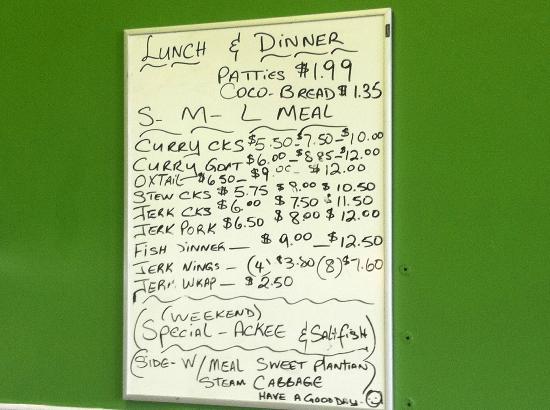 LUNCH & DINNER
PATTIES $1.99
COCO-BREAD $1.35
S- M- L MEAL
CURRY CKS $5.50-$7.50-$10.00
CURRY GOAT $6.00-$8.85-$12.00
OXTAIL-$6.50-$9.00-$12.00
STEW CKS $5.75 $8.00 $10.50
JERK CKS $6.00 $7.50 $11.50
JERK PORK $6.50 $8.00 $12.00
FISH DINNER- $9.00-$12.50
JERK NINGS-(4) $3.80 (8) $7.60
JERK WRAP-$2.50
(WEEKEND)
(SPECIAL-ACKEE & Saltfish)
(SIDE-W/MEAL SWEET PLANTIAN
STEAM CABBAGE
HAVE A GOOD DAY.